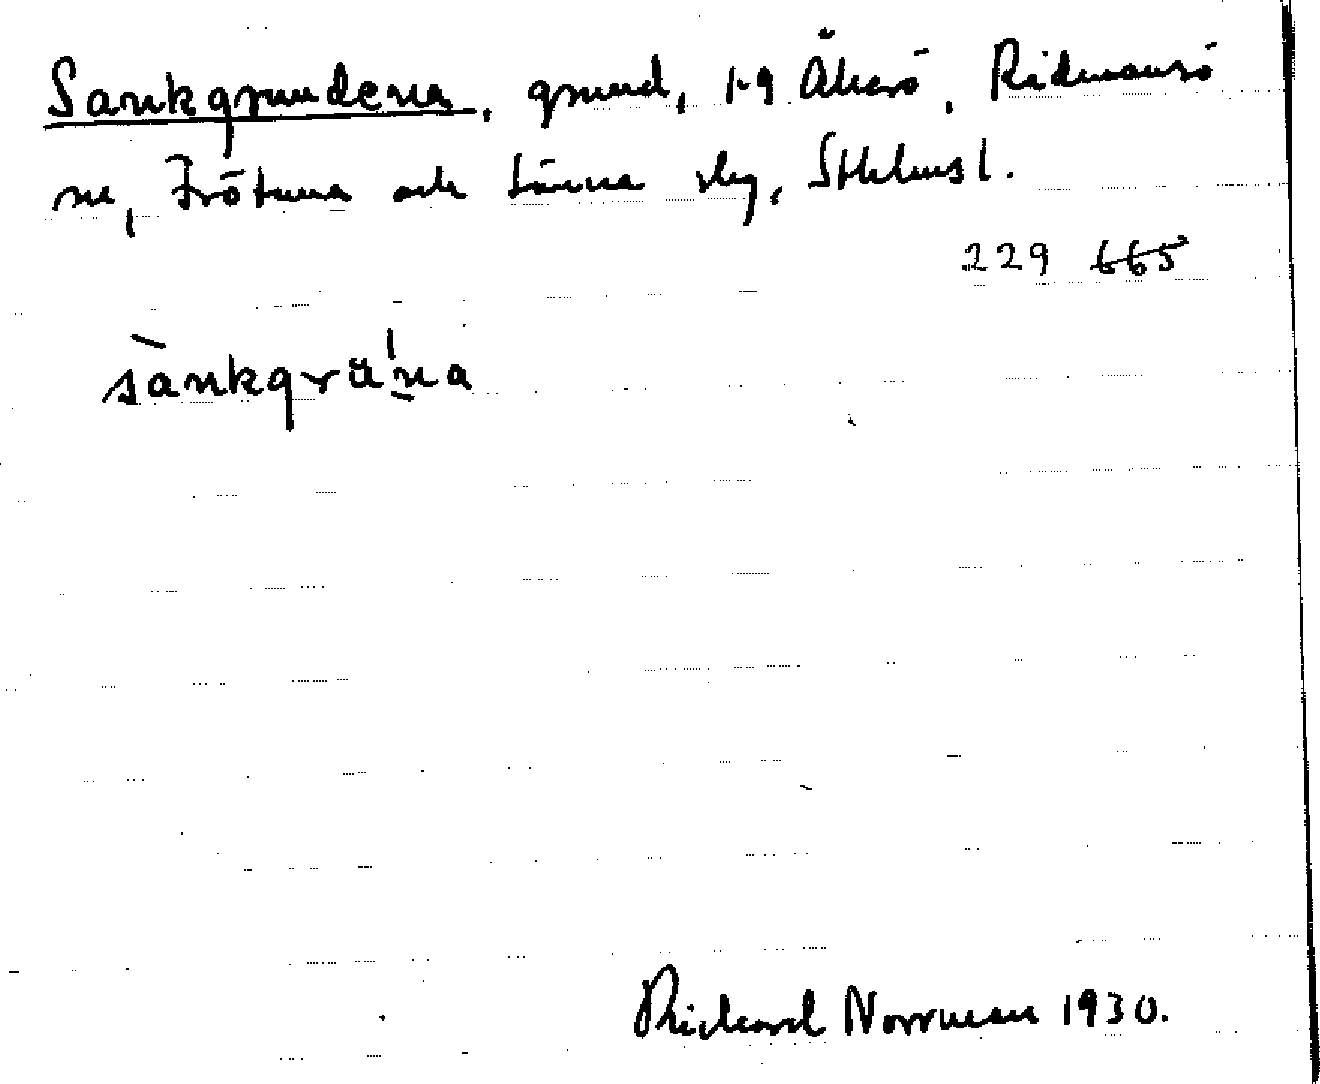 Sankgrundena, grund, 1-9 Åkerö, Ridmansö
sn, Frötuna och Länna slg, Sthlms l.
229 665
sànkgrä'na
Richard Norrman 1930.